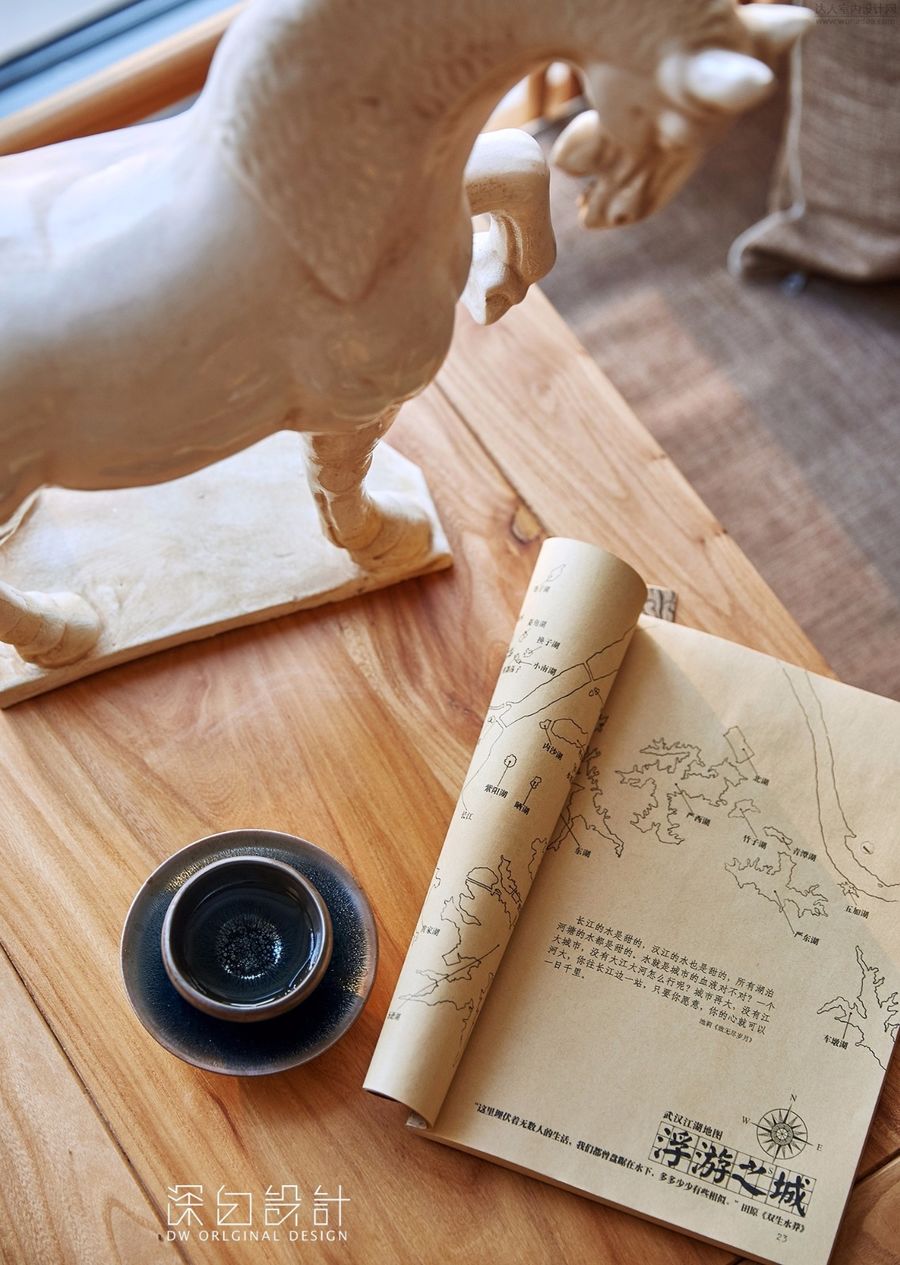 达人室内设计网
换子湖
小南湖
内沙湖
紫阳湖
晒湖
长江
东湖
北湖
严西湖
竹子湖
青潭湖
五加湖
严东湖
车墩湖
长江的水是甜的，汉江的水也是甜的，所有湖泊
河塘的水都是甜的，水就是城市的血液对不对？一个
大城市，没有大江大河怎么行呢？城市再大，没有江
大河，你往长江边一站，只要你愿意，你的心就可以
一日千里。
池莉《致无尽岁月》
N
W
E
S
武汉江湖地图
浮游之城
"这里埋伏着无数人的生活，我们都曾盘踞在水下，多多少少有些相似。"田原《双生水莽》
23
深白設計
DW ORLGINAL DESIGN